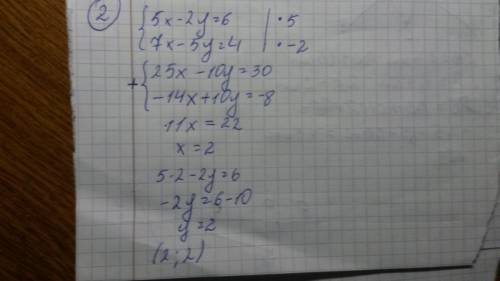 2
5x-2y=6 | · 5
7x-5y=4 | · -2
+ 25x-10y=30
-14x+10y=-8
11x=22
x=2
5·2-2y=6
-2y=6-10
y=2
(2;2)